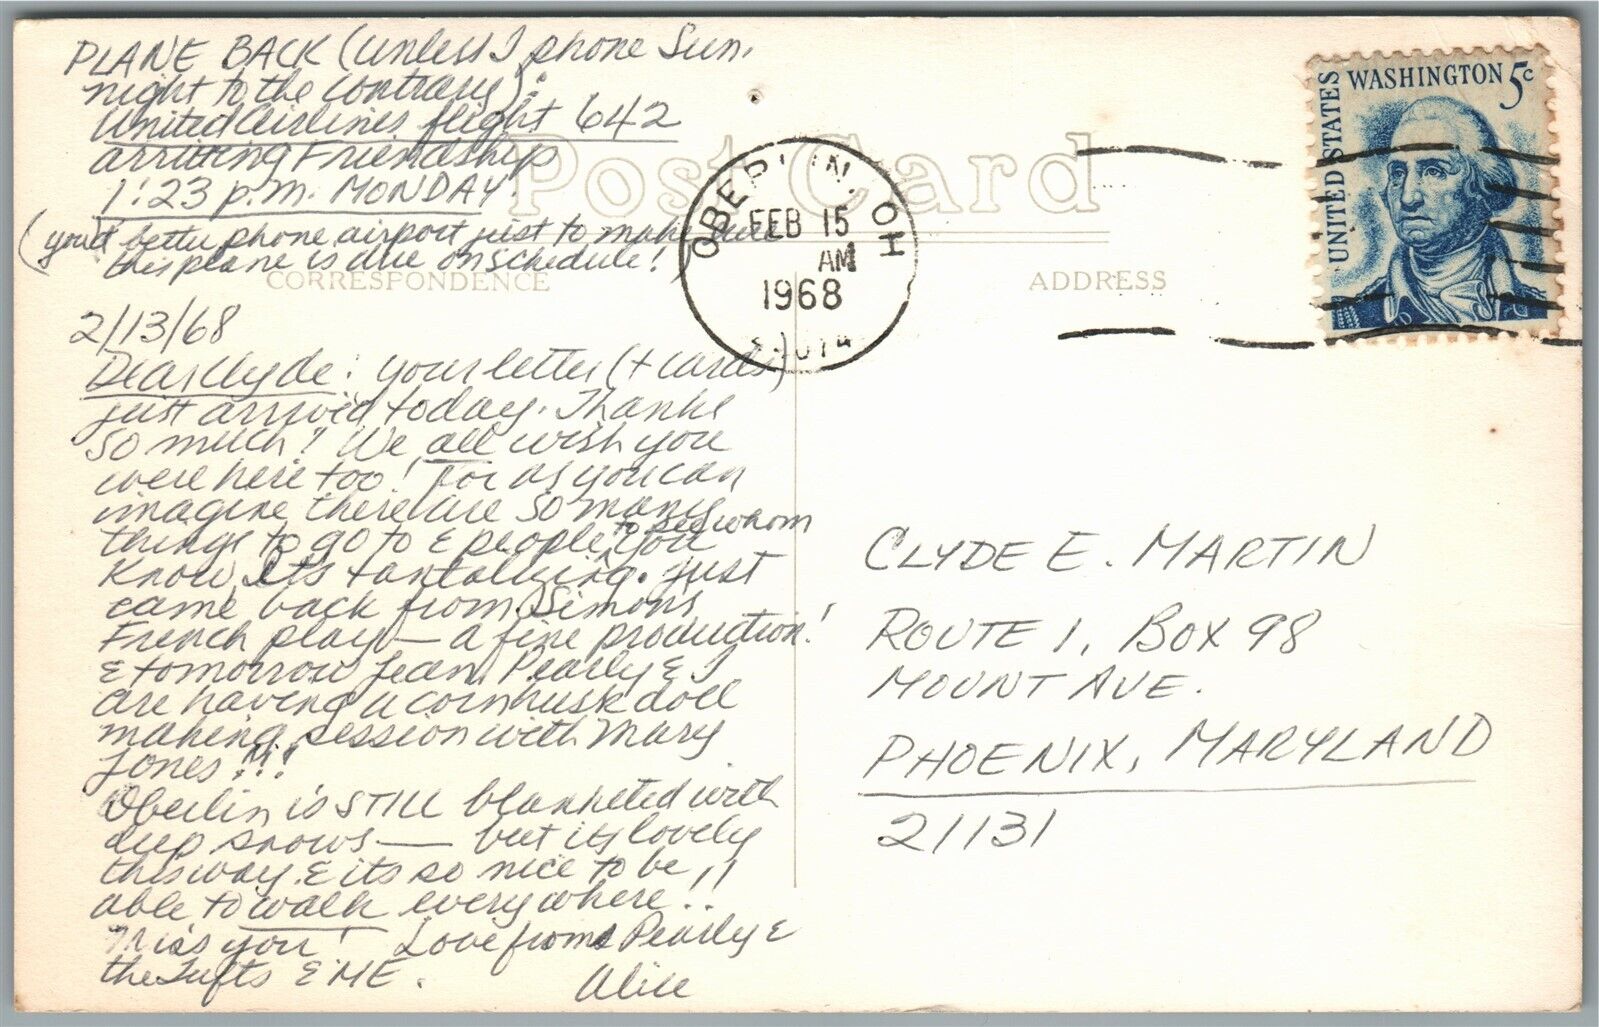 PLANE BACK (unless I phone Sun.
night to the contrary):
United Airlines flight 642
arriving Friendship
1:23 p.m. MONDAY
(you'd better phone airport just to make sure
this plane is due on schedule!
Post Card
CORRESPONDENCE
ADDRESS
2/13/68
Dear Clyde: your letter (+ cards)
just arrived today. Thanks
so much! We all wish you
were here too! For as you can
imagine there are so many
things to go to & people to see whom you
know. Its tantalizing. Just
came back from Simon's
French play — a fine production!
& tomorrow Jean, Pearly & I
are having a cornhusk doll
making session with Mary
Jones!!!
Oberlin is STILL blanketed with
deep snows — but its lovely
this way & its so nice to be
able to walk everywhere!!
Miss you! Love from Pearly &
the Tufts & ME.
Alice
OBERLIN, OH
FEB 15
AM
1968
UNITED STATES
WASHINGTON 5c
CLYDE E. MARTIN
ROUTE 1, BOX 98
MOUNT AVE.
PHOENIX, MARYLAND
21131